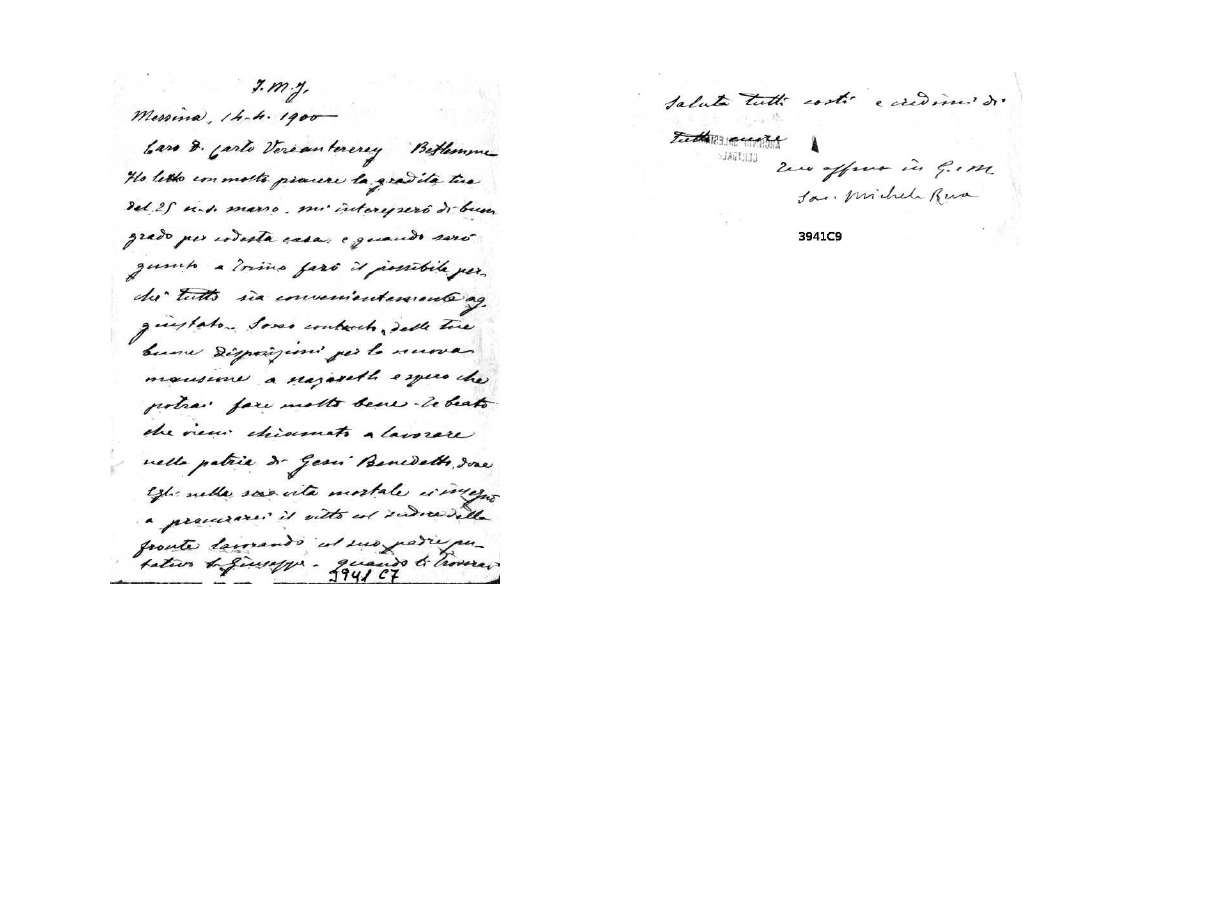 J. M. J.
Messina, 14-4-1900
Caro D. Carlo Betlemme
Ho letto con molto piacere la gradita tua
del 25 marzo. mi interesserò di buon
grado per codesta casa. e quando sarò
giunto a Torino farò il possibile per-
chè tutto sia convenientemente ag-
giustato. Sono contento delle tue
buone disposizioni per la nuova
mansione a Nazareth e spero che
potrai fare molto bene. Te beato
che vieni chiamato a lavorare
nella patria di Gesù Benedetto, dove
Egli nella sua vita mortale ci insegnò
a procurarci il vitto col sudore della
fronte lavorando col suo padre pu-
tativo S. Giuseppe. quando ti troverai
3941 C7
Saluta tutti costì e credimi di
tutto cuore
ARCHIVIO SALESIANO
CENTRALE
Tuo affmo in G. e M.
Sac. Michele Rua
3941C9